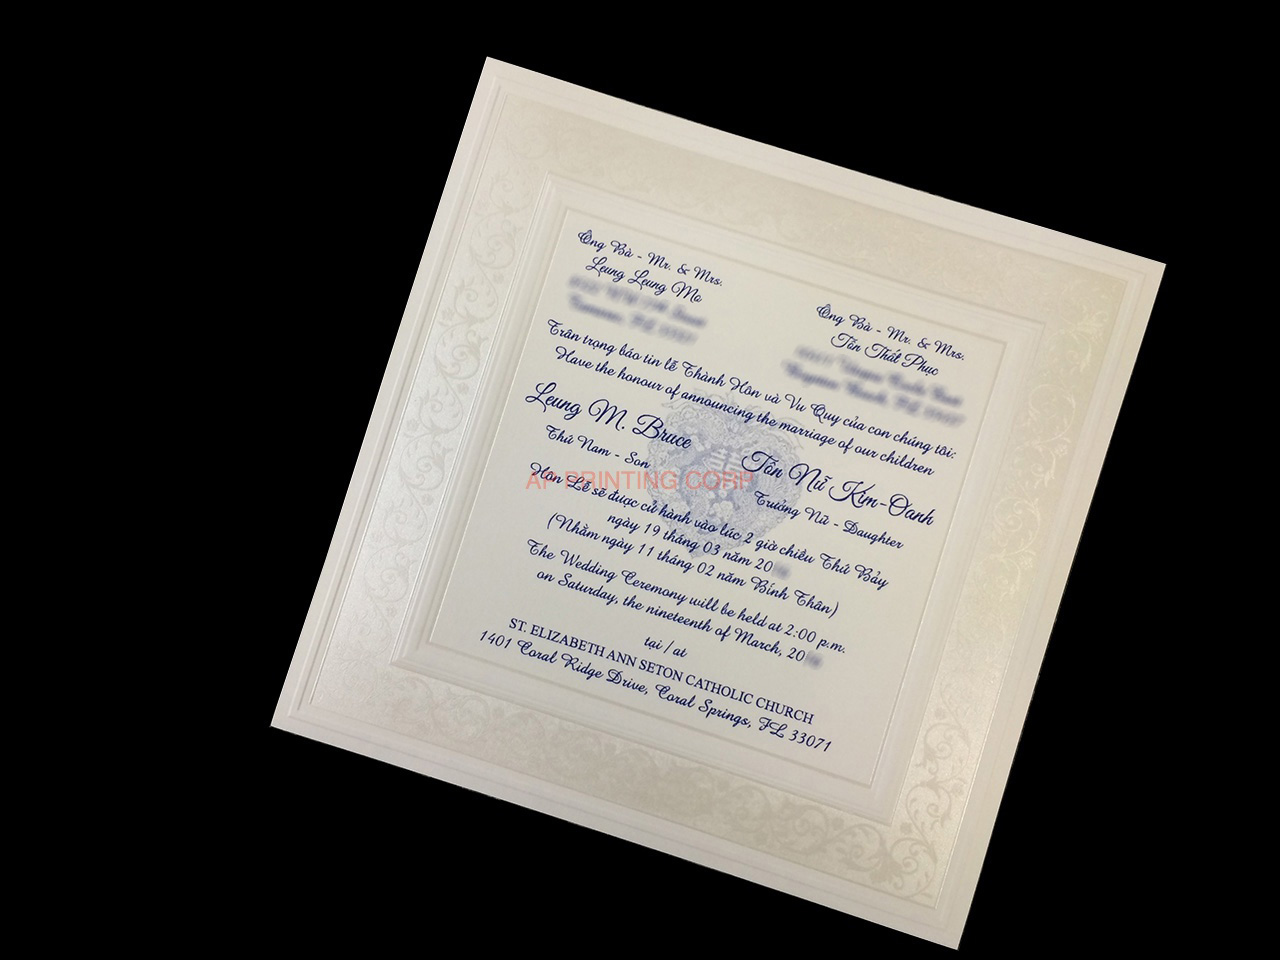 Ông Bà - Mr. & Mrs.
Leung Leung Mo
Ông Bà - Mr. & Mrs.
Tôn Thất Phục
Trân trọng báo tin lễ Thành Hôn và Vu Quy của con chúng tôi:
Have the honour of announcing the marriage of our children
Leung M. Bruce
Thứ Nam - Son
Tôn Nữ Kim-Oanh
Trưởng Nữ - Daughter
AP PRINTING CORP
Hôn Lễ sẽ được cử hành vào lúc 2 giờ chiều Thứ Bảy
ngày 19 tháng 03 năm 20
(Nhằm ngày 11 tháng 02 năm Bính Thân)
The Wedding Ceremony will be held at 2:00 p.m.
on Saturday, the nineteenth of March, 20
tại / at
ST. ELIZABETH ANN SETON CATHOLIC CHURCH
1401 Coral Ridge Drive, Coral Springs, FL 33071